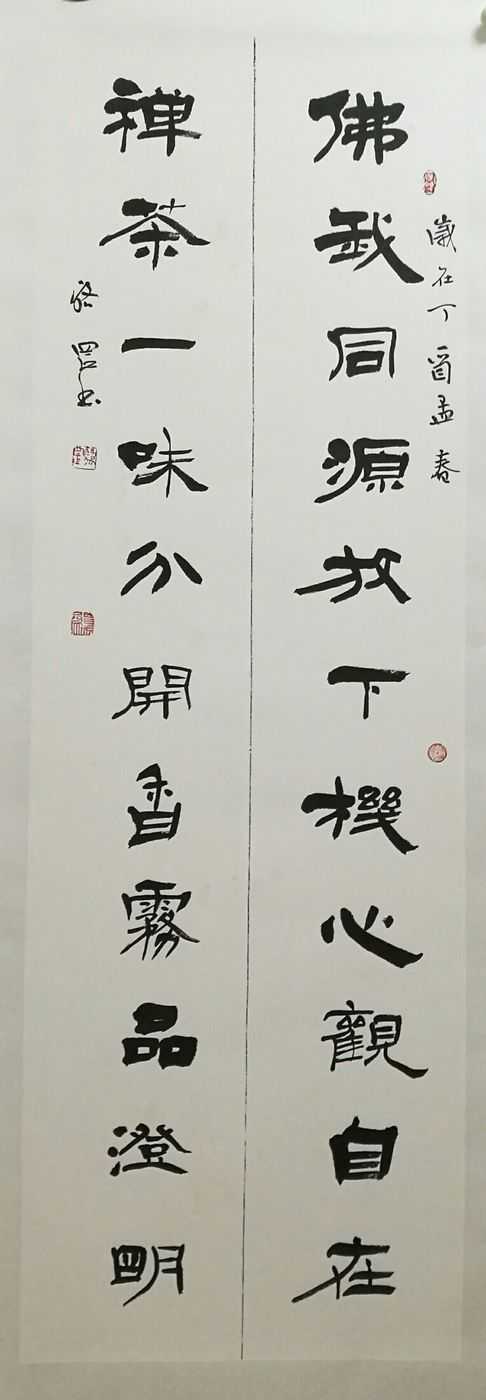 歲在丁酉孟春
佛我同源放下機心觀自在
禪茶一味分開香霧品澄明
書